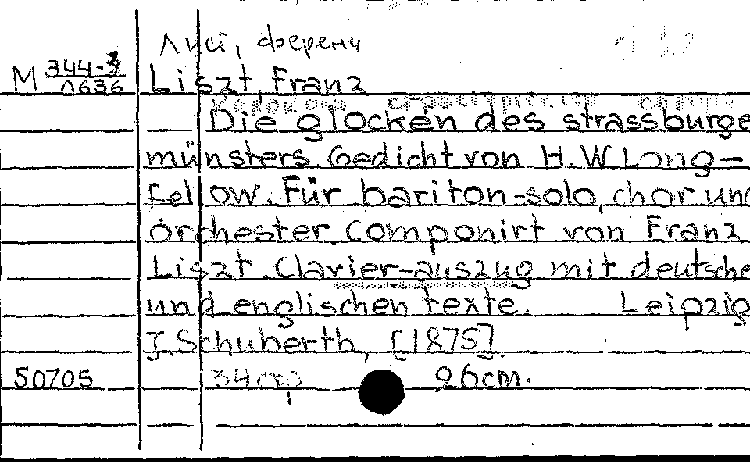 Лист, Ференц
M 344-3/0636 Liszt, Franz
Die glocken des strassburge
münsters. Gedicht von H.W Long-
fellow. Für bariton-solo, chor und
orchester. Componirt von Franz
Liszt. Clavier-auszug mit deutsche
und englischen texte. Leipzig
J. Schuberth, [1875].
50705 34 стр 26cm.